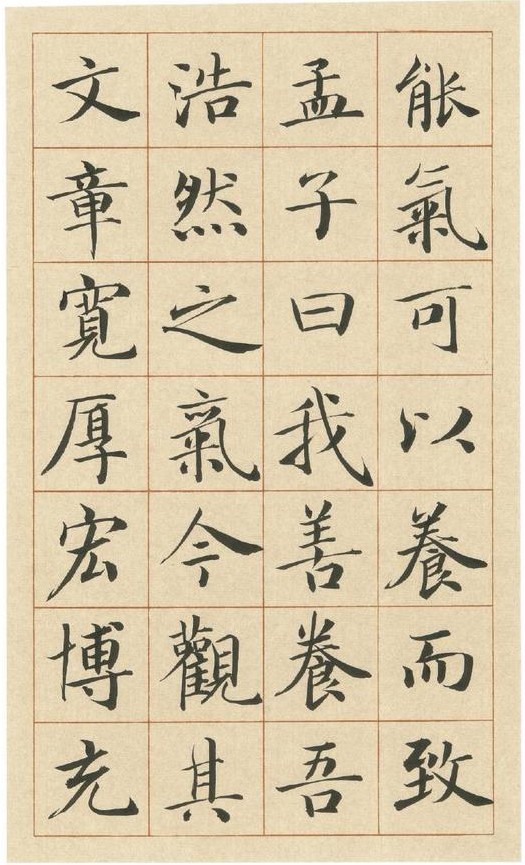 能氣可以養而致
孟子曰我善養吾
浩然之氣今觀其
文章寬厚宏博充